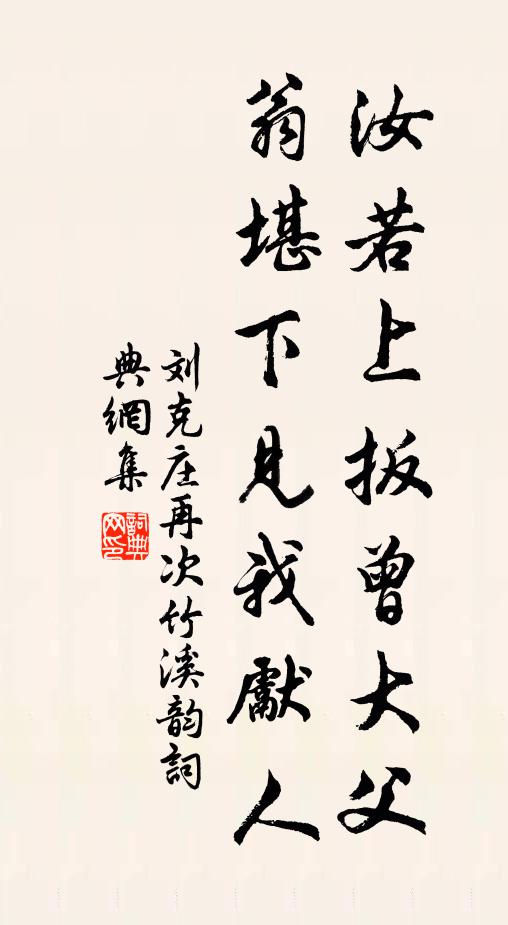 汝若上扳曾大父
翁堪下見我獻人
刘克庄再次竹溪韵詞
典網集
詞典网印